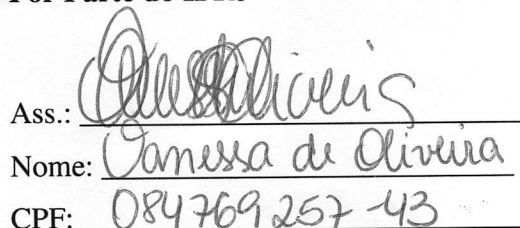 Ass.:
Nome: Vanessa de Oliveira
CPF: 084769257-43